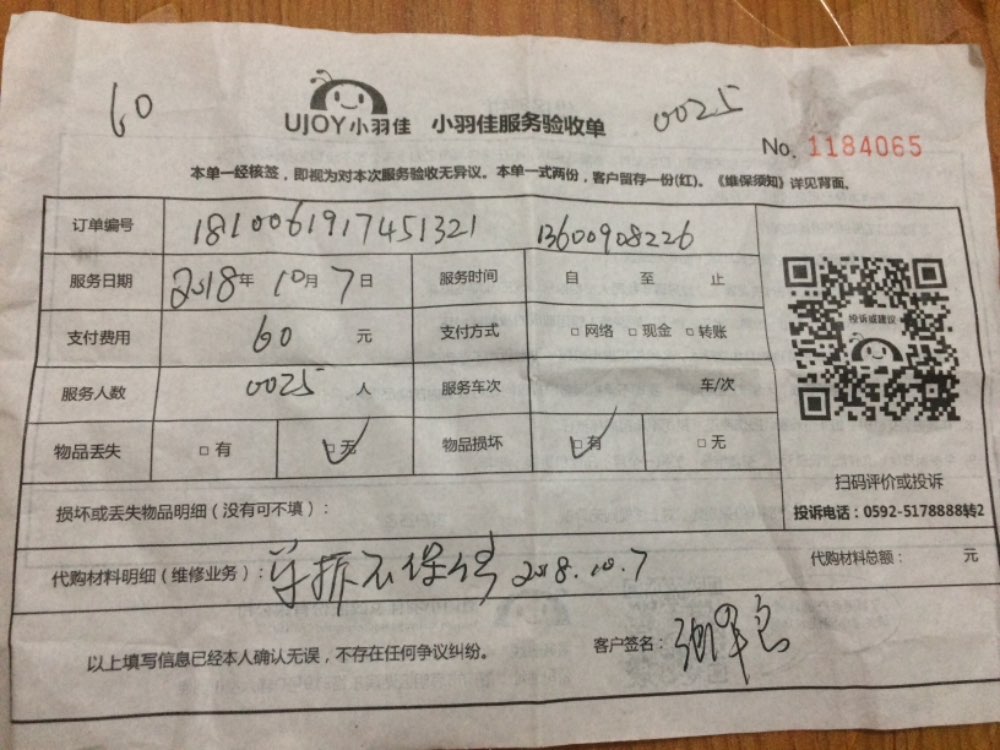 60
UJOY小羽佳 小羽佳服务验收单
0025
No. 1184065
本单一经核签，即视为对本次服务验收无异议。本单一式两份，客户留存一份(红)。《维保须知》详见背面。
订单编号 1810061917451321 13600908226
服务日期 2018年 10月 7日 服务时间 自 至 止
支付费用 60 元 支付方式 □网络 □现金 □转账
服务人数 0025 人 服务车次 车/次
物品丢失 □有 □无 物品损坏 □有 □无
投诉或建议
扫码评价或投诉
投诉电话：0592-5178888转2
损坏或丢失物品明细（没有可不填）：
代购材料明细（维修业务）：单拆不保修 2018.10.7 代购材料总额： 元
以上填写信息已经本人确认无误，不存在任何争议纠纷。 客户签名：